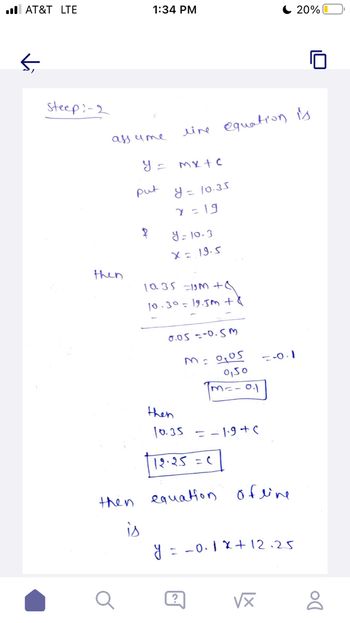 AT&T LTE 1:34 PM 20%
Steep:-2
assume line equation is
y = mx + c
put y = 10.35
x = 19
& y = 10.3
x = 19.5
then
10.35 = 19m + c
10.30 = 19.5m + c
- - -
0.05 = -0.5m
m = 0,05 = -0.1
0,50
m = -0.1
then
10.35 = -1.9 + c
12.25 = c
then equation of line
is
y = -0.1x + 12.25
? √x